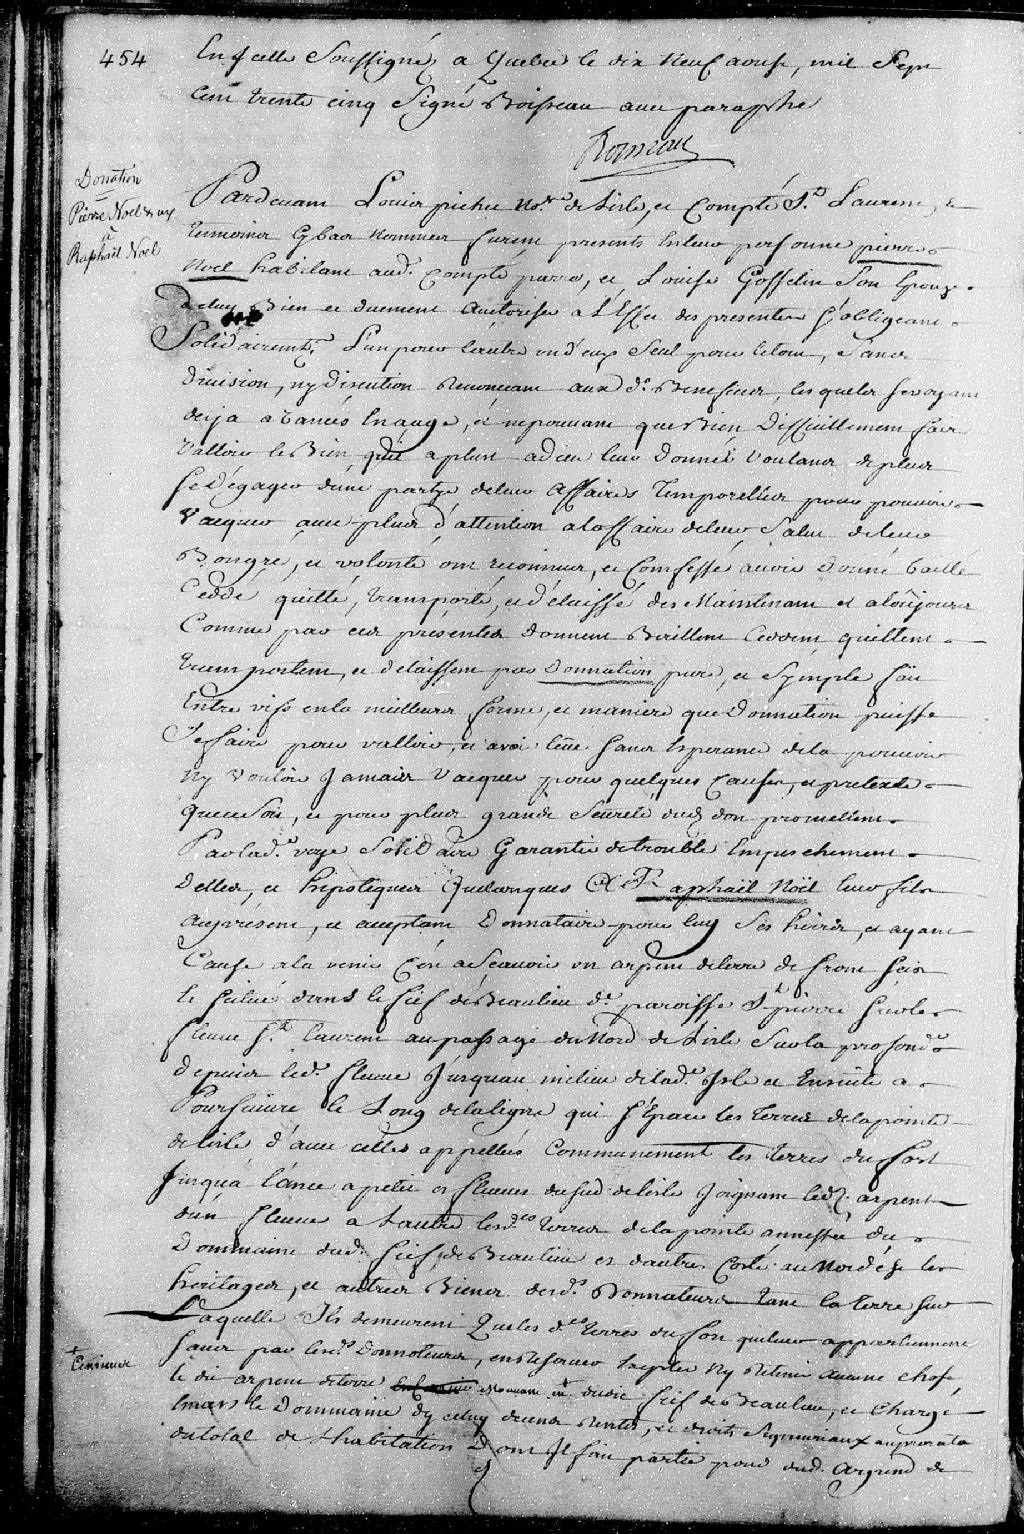 454
En Icelle Soussigné, a Quebec le dix neuf aoust, mil Sept
Cent trente cinq Signé Boisseau avec paraphe
Boisseau
Donation
Pierre Noel & ux
à
Raphaël Noel
Pardevant Louis pichet No.re de Lisle, et Compté S.t Laurent, et
temoins cy bas nommés furent presents En leur personne pierre
Noel habitant aud. Compté parro, et Louise Gosselin Son Epouze
de luy Bien et duement Auctorisée a L'Effet des presentes S'obligeant
Solidairemt. L'un pour lautre un d'eux Seul pour le tout, Sans
division, ny discution Renonceant aux d. Benefices, lesquels Se voyant
deja avancés En aage, et ne pouvant que Bien Difficillement faire
Valloir le Bien quil a plut a dieu leur Donner Voulant de plus
Se Dégager d'une partye de leur Affaires Temporelles pour pouvoir
Vacquer avec plus d'attention a laffaire de leur Salut de leur
Bongré, et volonté ont reconnus, et Confessé avoir Donné baillé
Ceddé quitté, transporté, et délaissé des Maintenant et a toujours
Comme par ces présentes Donnent Baillent Ceddent quittent
transportent, et délaissent par Donnation pure, et Symple fait
Entre vifs en la meilleure forme, et maniere que Donnation puisse
Se faire pour valloir, et avoir lieu Sans Esperance de la pouvoir
Ny Vouloir Jamais Vacquer pour quelques Causes, et pretexte
que ce Soit, et pour plus grande Seureté dud don promettent
Par lad. voye Solidaire Garantir de trouble Empeschement
Dettes, et hipoteques Quelconques a Raphaël Noël leur fils
a ce présent, et acceptant Donnataire pour luy Ses hoirs, et ayant
Cause a la venir C'est a Scavoir un arpent de terre de front Sçis
et Scitué dans le fief de Beaulieu de. paroisse S.t pierre Sur le
fleuve S.t laurent au passage du Nord de Lisle Sur la profond.r
depuis led. fleuve Jusquau milieu de lad. Isle et Ensuite a
Poursuivre le Long de la ligne qui Sépare les terres de la pointe
de lisle d'avec celles appellées Communement les terres du fort
Jusqu'a l'ance a petit et fleuve du Sud de lisle Joignant led. arpent
d'un fleuve a Lautre lesd.tes terres de la pointe annexées du
Dommaine dud. fief de Beaulieu et d'autre Costé au Nord est les
heritages, et autres Biens desd. Donnateurs tant la terre Sur
Laquelle Ils demeurent Que les d.tes terres du fort qui leur appartiennent
Sans par lesd.s Donnateurs, en Reserver Excepter Ny Retenir Aucune chose,
+ Censives
le dit arpent de terre Mouvant en + dudit fief de Beaulieu, et Chargé
Envers le Dommaine d'y celuy de cens Rentes, et droits Seigneuriaux au prorata
du total de L'habitation Dont Il fait partie pour dud. Arpent de